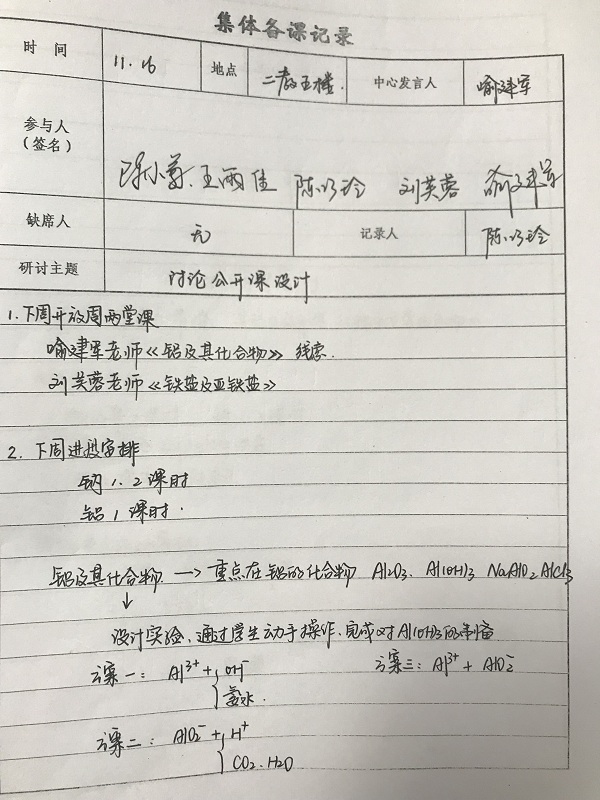 集体备课记录
时 间 11.16 地点 二教五楼. 中心发言人 喻建军
参与人
(签名)
王雨佳 陈巧玲 刘芙蓉 喻建军
缺席人 无 记录人 陈巧玲
研讨主题 讨论公开课设计
1.下周开放周两堂课
喻建军老师《铝及其化合物》 线索.
刘芙蓉老师《铁盐及亚铁盐》
2. 下周进投安排
钠 1.2课时
铝 1课时.
铝及其化合物 → 重点在铝的化合物 Al2O3. Al(OH)3 NaAlO2 AlCl3
↓
设计实验,通过学生动手操作,完成对Al(OH)3的制备
方案一: Al³⁺ + { OH⁻ 方案三: Al³⁺ + AlO2⁻
氨水.
方案二: AlO2⁻ + { H⁺
CO2·H2O